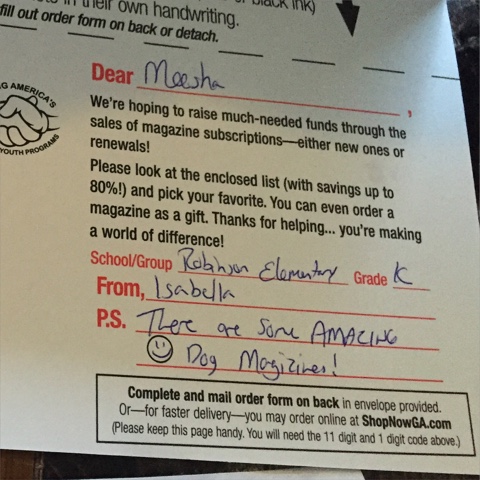 in their own handwriting.
fill out order form on back or detach.
Dear Meesha,
We're hoping to raise much-needed funds through the
sales of magazine subscriptions—either new ones or
renewals!
AMERICA'S
YOUTH PROGRAMS
Please look at the enclosed list (with savings up to
80%!) and pick your favorite. You can even order a
magazine as a gift. Thanks for helping... you're making
a world of difference!
School/Group Robinson Elementary Grade K
From, Isabella
P.S. There are some AMAZING
Dog Magizines!
Complete and mail order form on back in envelope provided.
Or—for faster delivery—you may order online at ShopNowGA.com
(Please keep this page handy. You will need the 11 digit and 1 digit code above.)